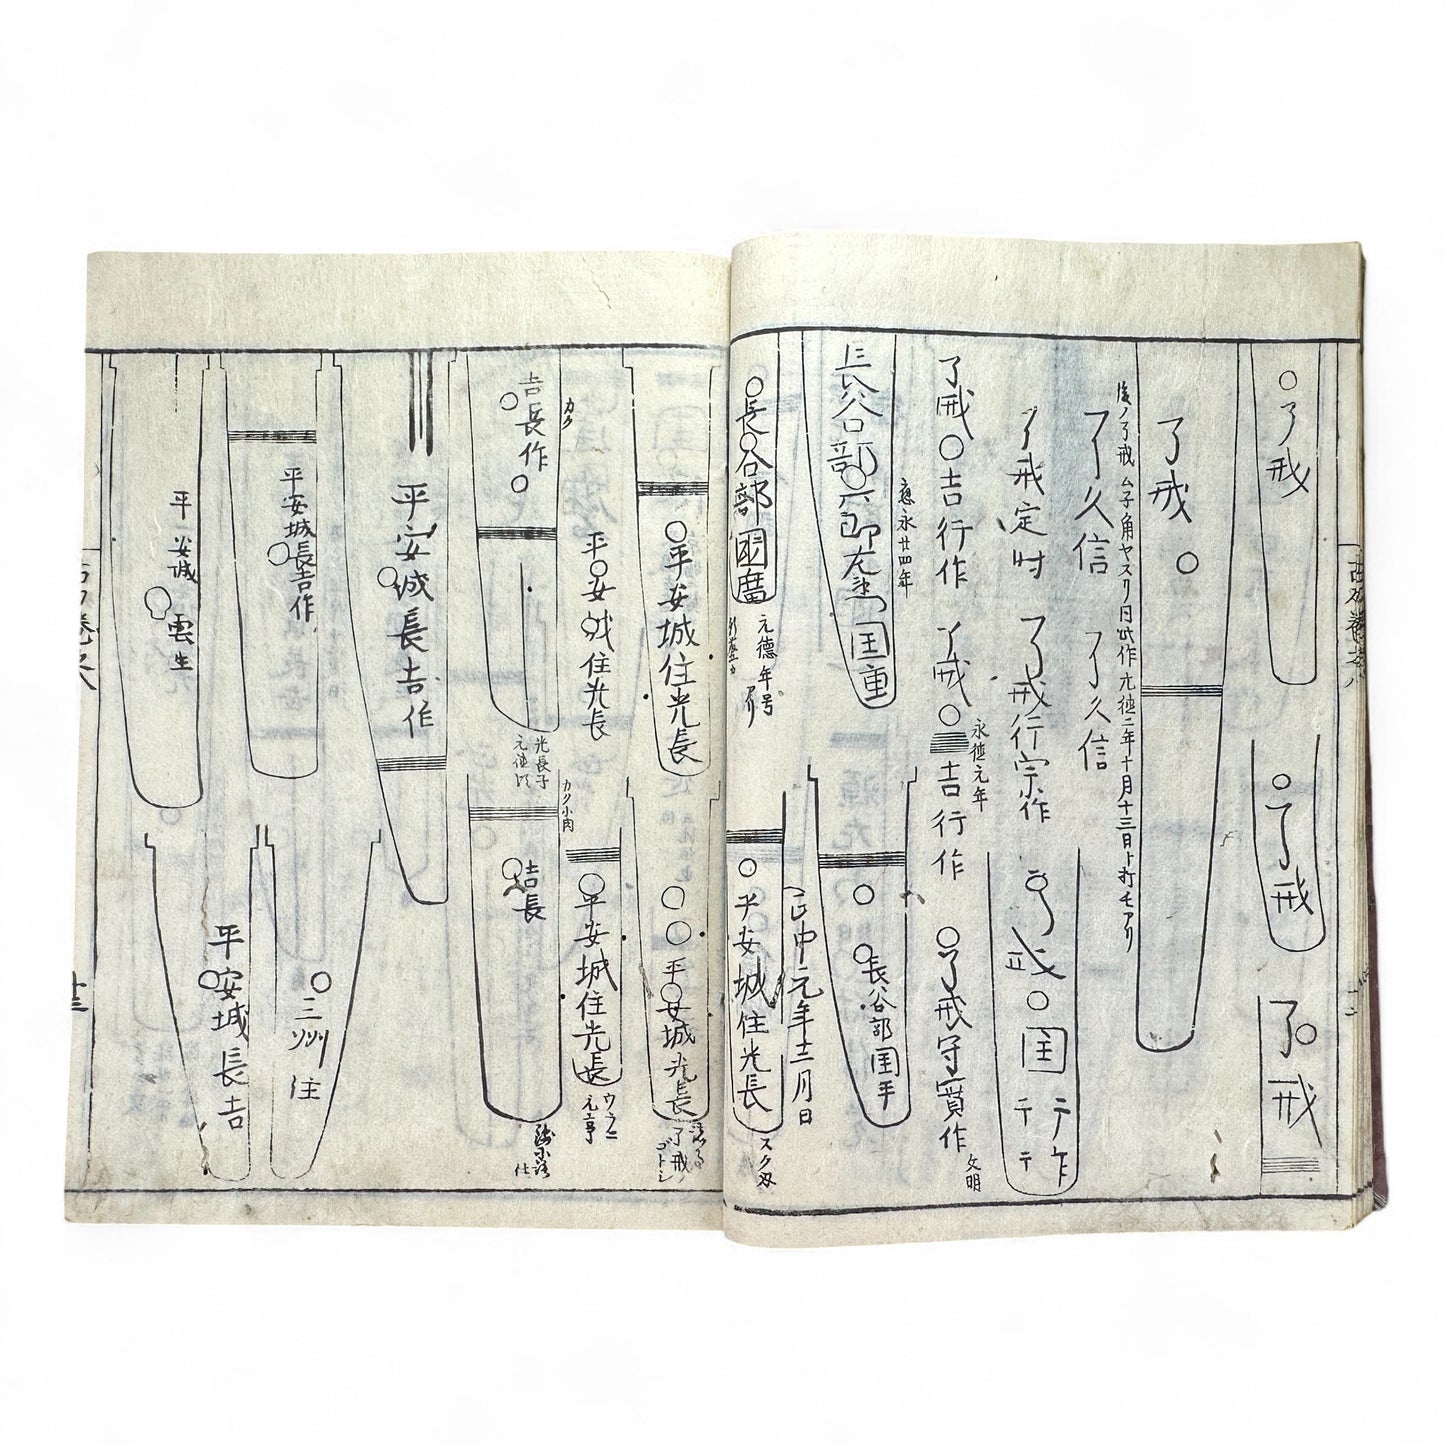 了戒
了戒
了戒
了戒
後ノ了戒ム子角ヤスリ日此作元徳二年十月十三日ト打モアリ
了久信
了久信
了戒定时
了戒行宗作
了戒国
了戒吉行作
了戒吉行作
永徳元年
了戒守實作
文明
長谷部六郎左
国重
應永廿四年
長谷部国平
長谷部國廣
元德年号
アリ
正中元年十二月日
平安城住光長
スク刃
平安城住光長
平安城光長
了戒ノ
ゴトシ
平安城住光長
平安城住光長
ウラニ
元亨
吉長作
カク
光長子
元徳比
カク小肉
吉長
平安城長吉作
平安城長吉作
三州住
平安城雲生
平安城長吉